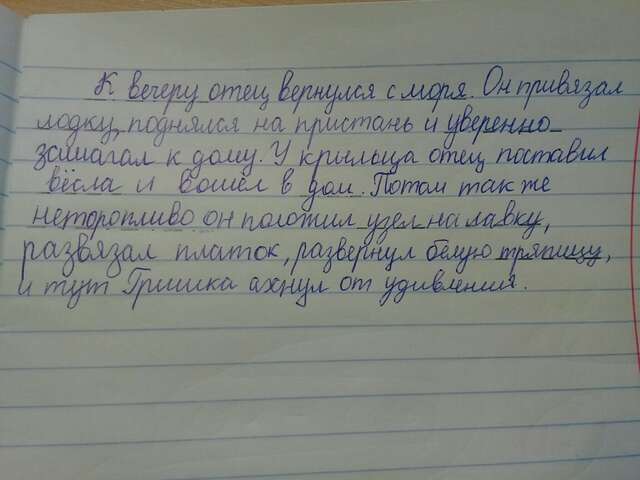 К вечеру отец вернулся с моря. Он привязал
лодку, поднялся на пристань и уверенно
зашагал к дому. У крыльца отец поставил
вёсла и вошёл в дом. Потом так же
неторопливо он положил узел на лавку,
развязал платок, развернул белую тряпицу,
и тут Гришка ахнул от удивления.